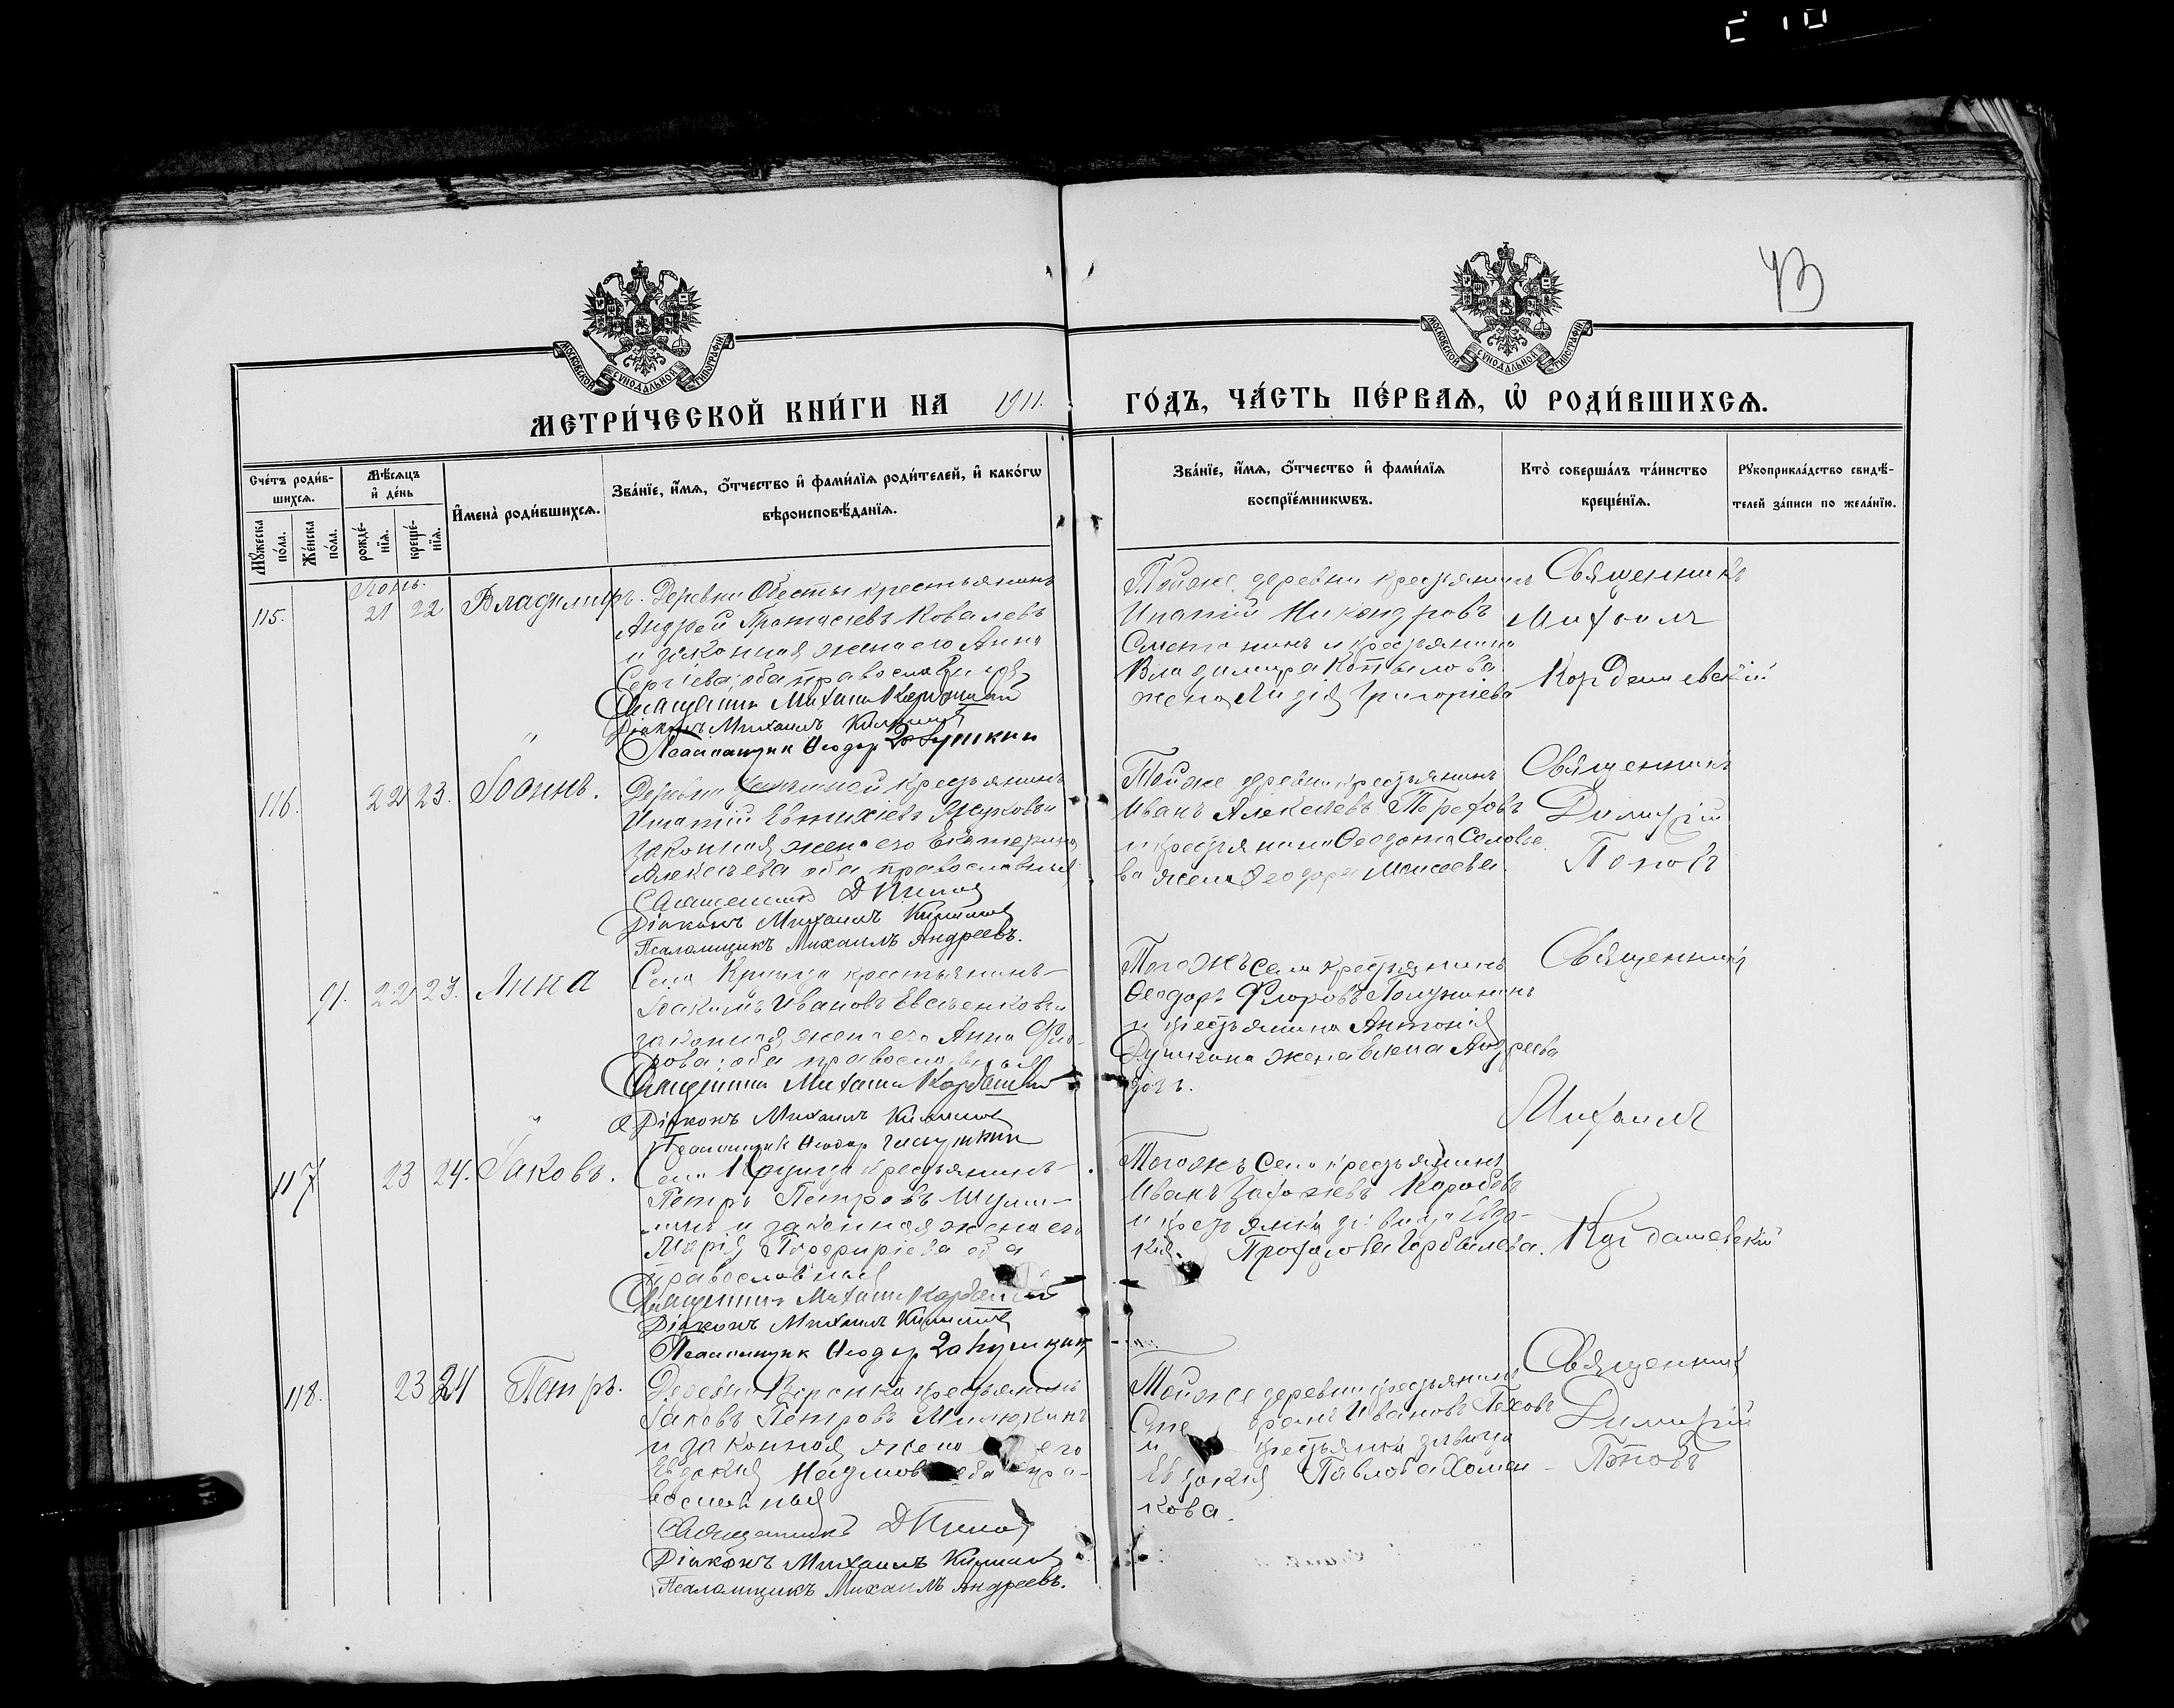 43
МОСКОВСКОЙ СУНОДАЛЬНОЙ ТИПОГРАФІИ
МОСКОВСКОЙ СУНОДАЛЬНОЙ ТИПОГРАФІИ
МЕТРИ́ЧЕСКОЙ КНИ́ГИ НА 1911. ГО́ДЪ, ЧА́СТЬ ПЕ́РВАѦ, Ѡ҆ РОДИ́ВШИХСѦ.
Сче́тъ роди́в-
шихсѧ.
Мꙋ́жеска по́ла.
Же́нска по́ла.
Мѣ́сѧцъ
и҆ де́нь
рожде́-
нїѧ.
креще́-
нїѧ.
И҆мена̀ роди́вшихсѧ.
Зва́нїе, и҆́мѧ, ѻ҆́тчество и҆ фами́лїѧ роди́телей, и҆ како́гѡ
вѣроисповѣ́данїѧ.
Зва́нїе, и҆́мѧ, ѻ҆́тчество и҆ фами́лїѧ
воспрїе́мникѡвъ.
Кто̀ соверша́лъ та́инство
креще́нїѧ.
Рꙋкоприкла́дство свидѣ́-
телей за́писи по жела́нїю.
115. 21 22 Владимиръ. Деревни Обесты крестьянинъ
Андрей Протасіевъ Ковалевъ
и законная жена его Анна
Сергіева; оба православныя
Священникъ Михаилъ
Діаконъ Михаилъ
Псаломщикъ Ѳеодор
Тойже деревни крестьянинъ
Ипатій Никандровъ
Сметанинъ и крестьянина
Владимира Копылова
жена Лидія Григоріева
Священникъ
Михаилъ
Кордашевскій
116. 22 23. Іоаннъ. Деревни крестьянинъ
Ипатій Евтихіевъ Жуковъ и
законная жена его Екатерина
Алексѣева оба православныя
Священникъ Д Попов
Діаконъ Михаилъ
Псаломщикъ Михаилъ Андреевъ.
Тойже деревни крестьянинъ
Иванъ Алексѣевъ Тереховъ
и крестьянина Ѳеодота Соловье-
ва жена Ѳеодора Моисеева.
Священникъ
Димитрій
Поповъ
91. 22 23. Анна Села Крупца крестьянинъ
Іоакимъ Ивановъ Евсѣенковъ и
законная жена его Анна Фло-
рова; оба православныя
Священникъ Михаилъ
Діаконъ Михаилъ
Псаломщикъ Ѳеодор
Тогожъ села крестьянинъ
Ѳеодоръ Флоровъ
и крестьянина Антонія
жена Елена Андреева
Священникъ
Михаилъ
117 23 24. Іаковъ. Села Крупца крестьянинъ
Петръ Петровъ
и законная жена его
Марія Порфиріева оба
православныя
Священникъ Михаилъ
Діаконъ Михаилъ
Псаломщикъ Ѳеодор
Тогожъ села крестьянинъ
Иванъ Коробовъ
и крестьянка дѣвица Евдо-
кія Горбылева.
Кордашевскій
118. 23 24 Петръ. Деревни Воронка крестьянинъ
Іаковъ Петровъ
и законная жена его
Евдокія Наумова оба пра-
вославныя
Священникъ Д Попов
Діаконъ Михаилъ
Псаломщикъ Михаилъ Андреевъ.
Тойже деревни крестьянинъ
Ивановъ
и крестьянка дѣвица
Евдокія Павлова Хомен-
кова.
Священникъ
Димитрій
Поповъ